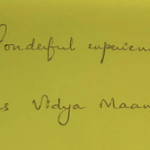 Wonderful experienc
s Vidya Maam